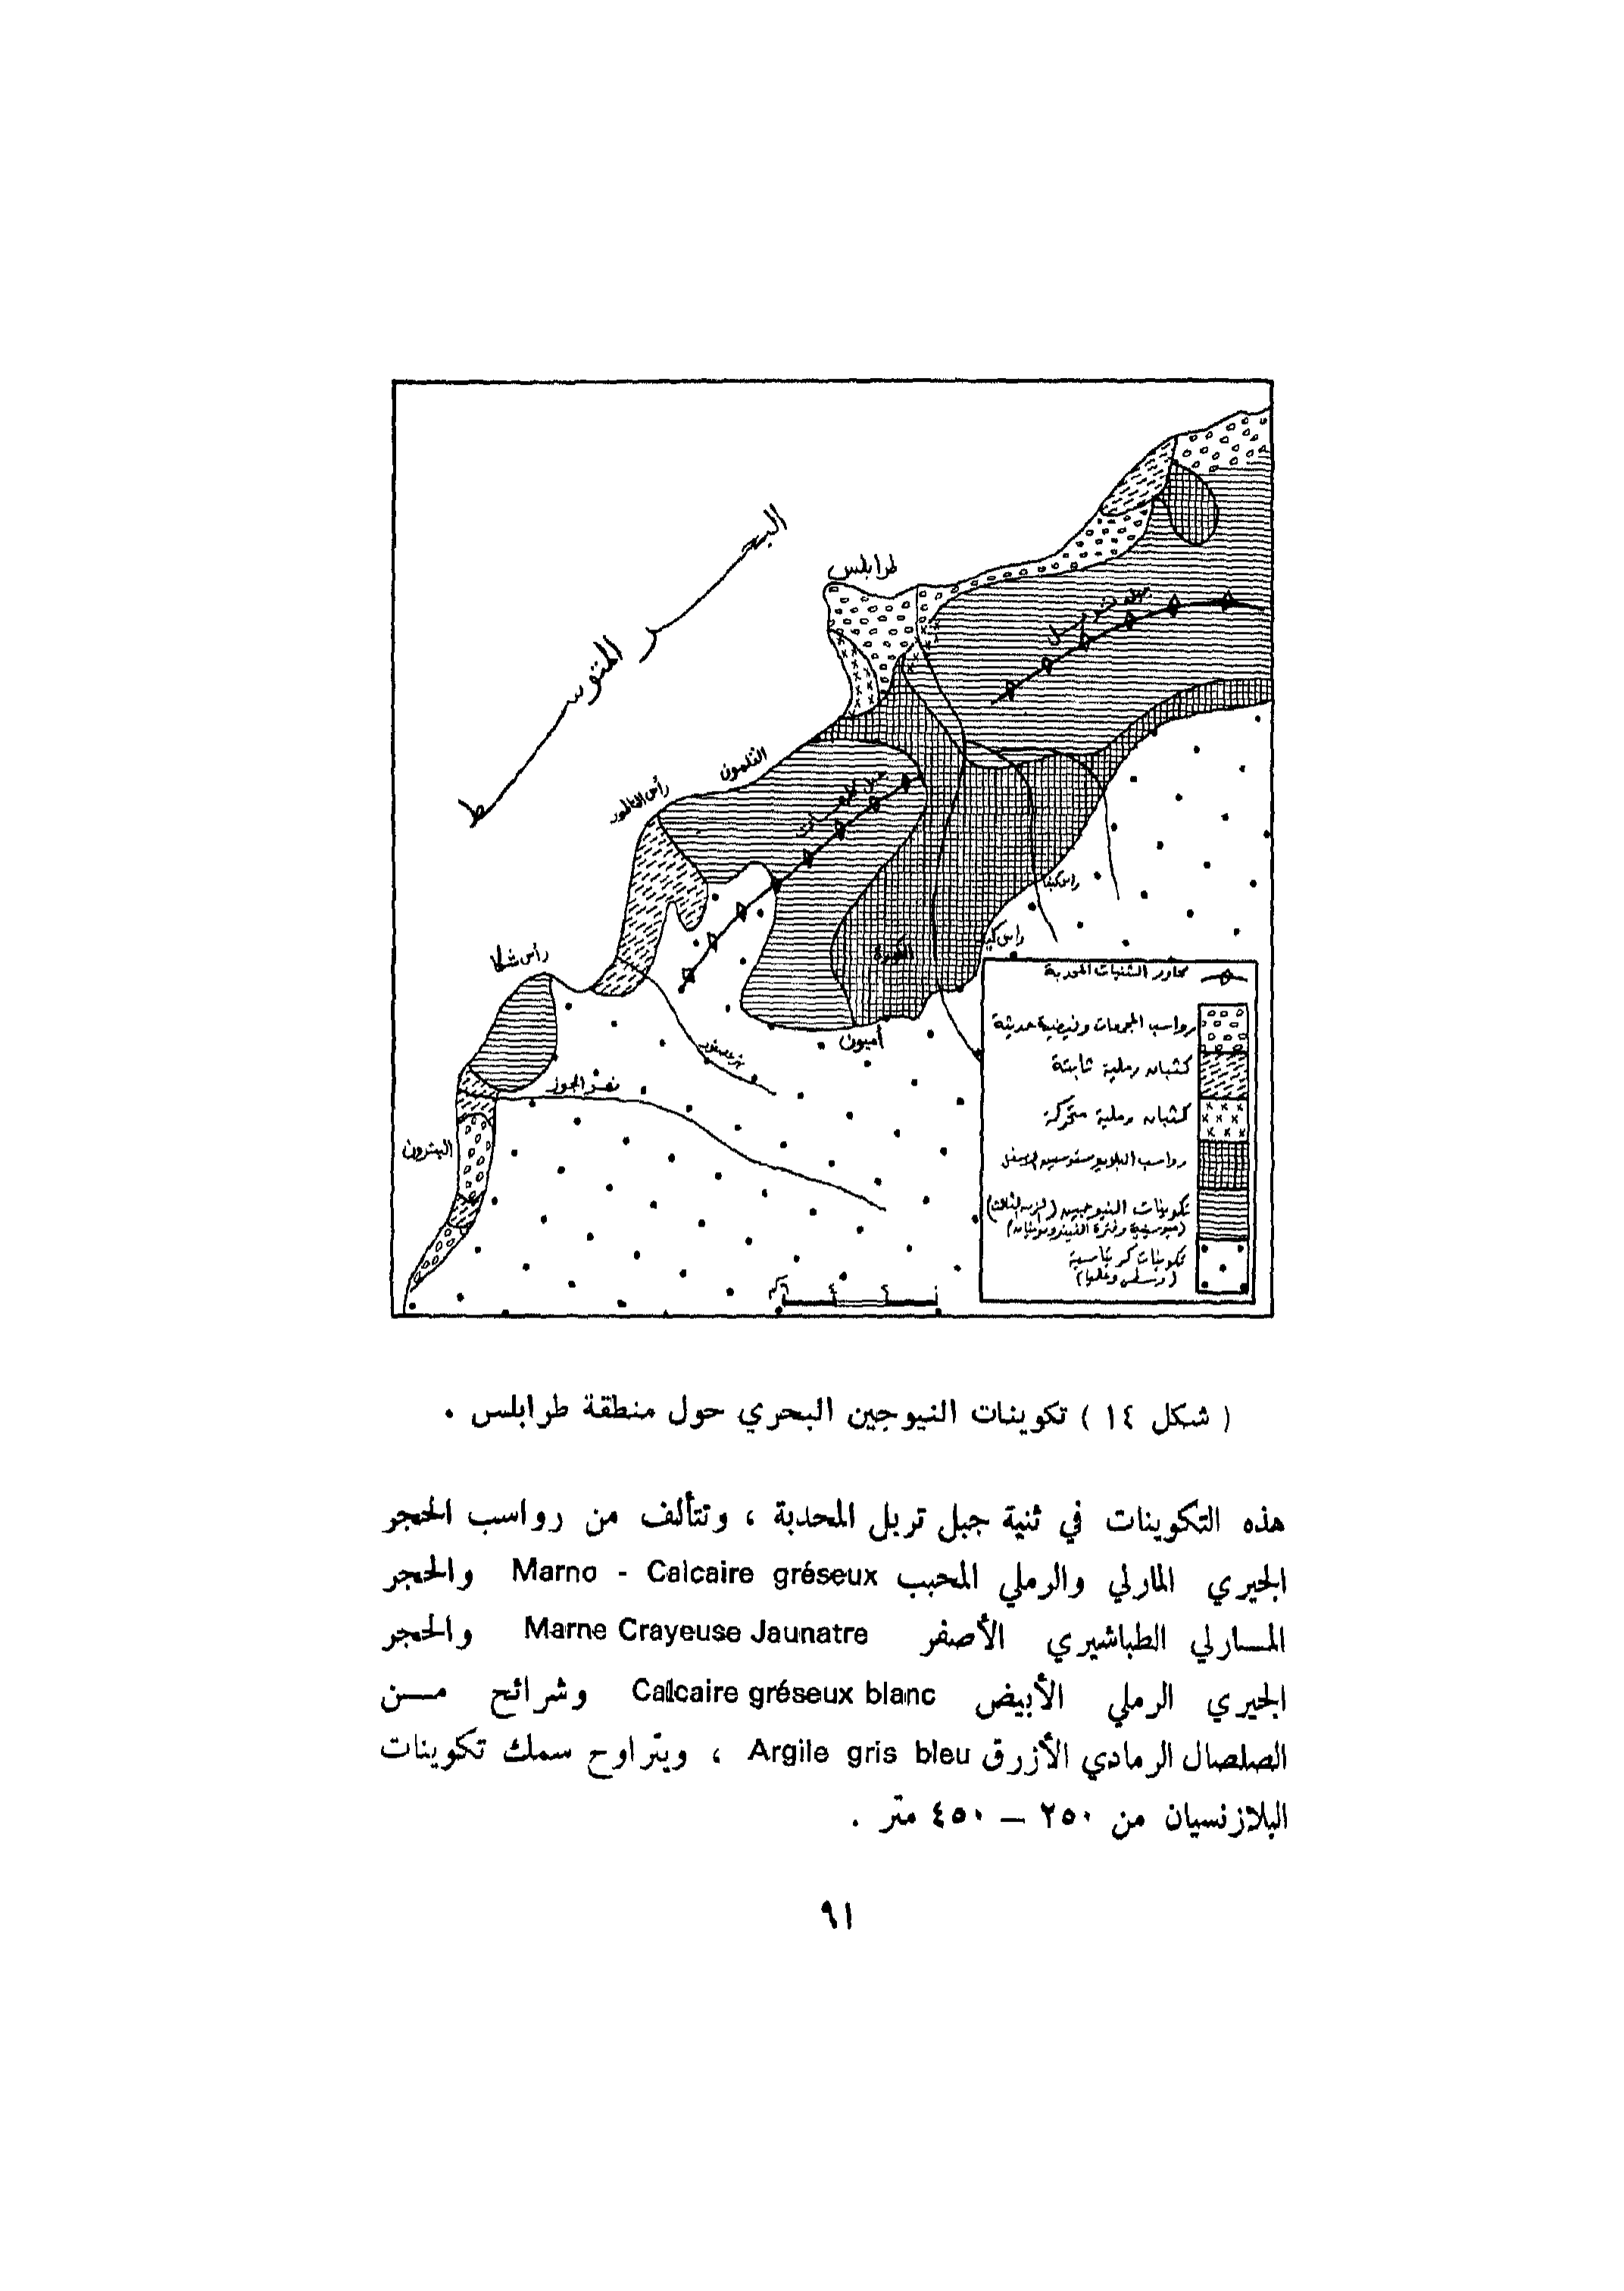 البحر المتوسط
طرابلس
القلمون
رأس شكا
الكورة
أميون
نهر الجوز
البترون
محاور الثنيات المحدبة
رواسب المجمعات وفيضية حديثة
كثبان رملية ثابتة
كثبان رملية متحركة
تكوينات النيوجين
تكوينات كريتاسية
( شكل ١٤ ) تكوينات النيوجين البحري حول منطقة طرابلس .
هذه التكوينات في ثنية جبل تربل المحدبة ، وتتألف من رواسب الحجر
الجيري المارلي والرملي المحبب Marno - Calcaire gréseux والحجر
المــارلي الطباشيري الأصفر Marne Crayeuse Jaunatre والحجر
الجيري الرملي الأبيض Calcaire gréseux blanc وشرائح مــن
الصلصال الرمادي الأزرق Argile gris bleu ، ويتراوح سمك تكوينات
البلازنسيان من ٢٥٠ – ٤٥٠ متر .
٩١